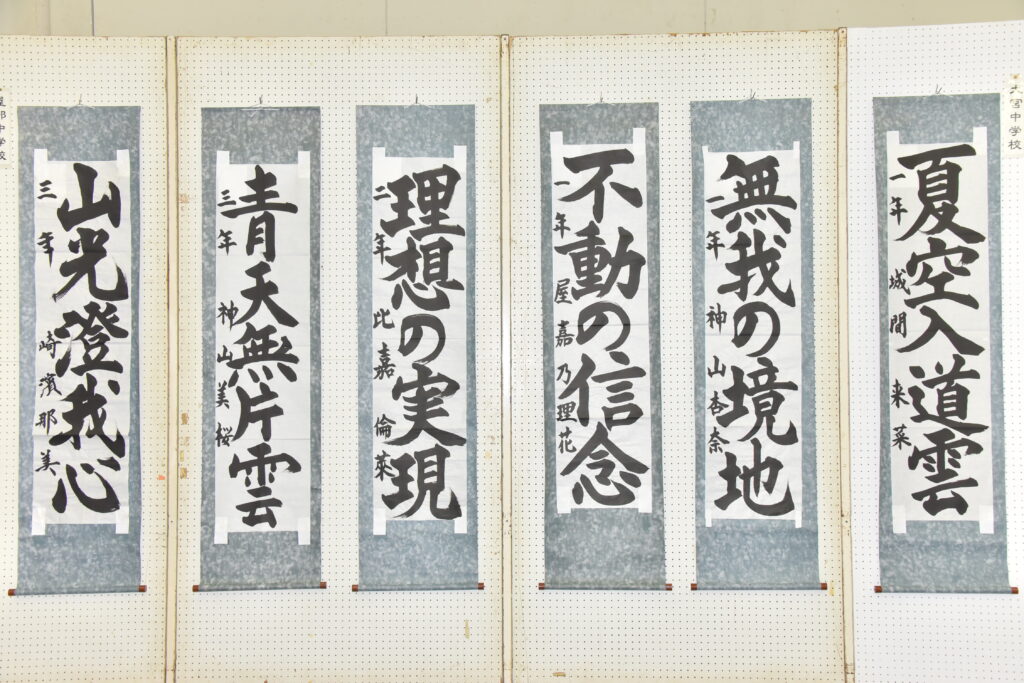 大宮中学校
夏空入道雲
一年 城間 来菜
無我の境地
一年 神山 杏奈
不動の信念
一年 屋嘉 乃理花
理想の実現
二年 比嘉 倫菜
青天無片雲
三年 神山 美桜
山光澄我心
三年 崎濱 那美
中学校